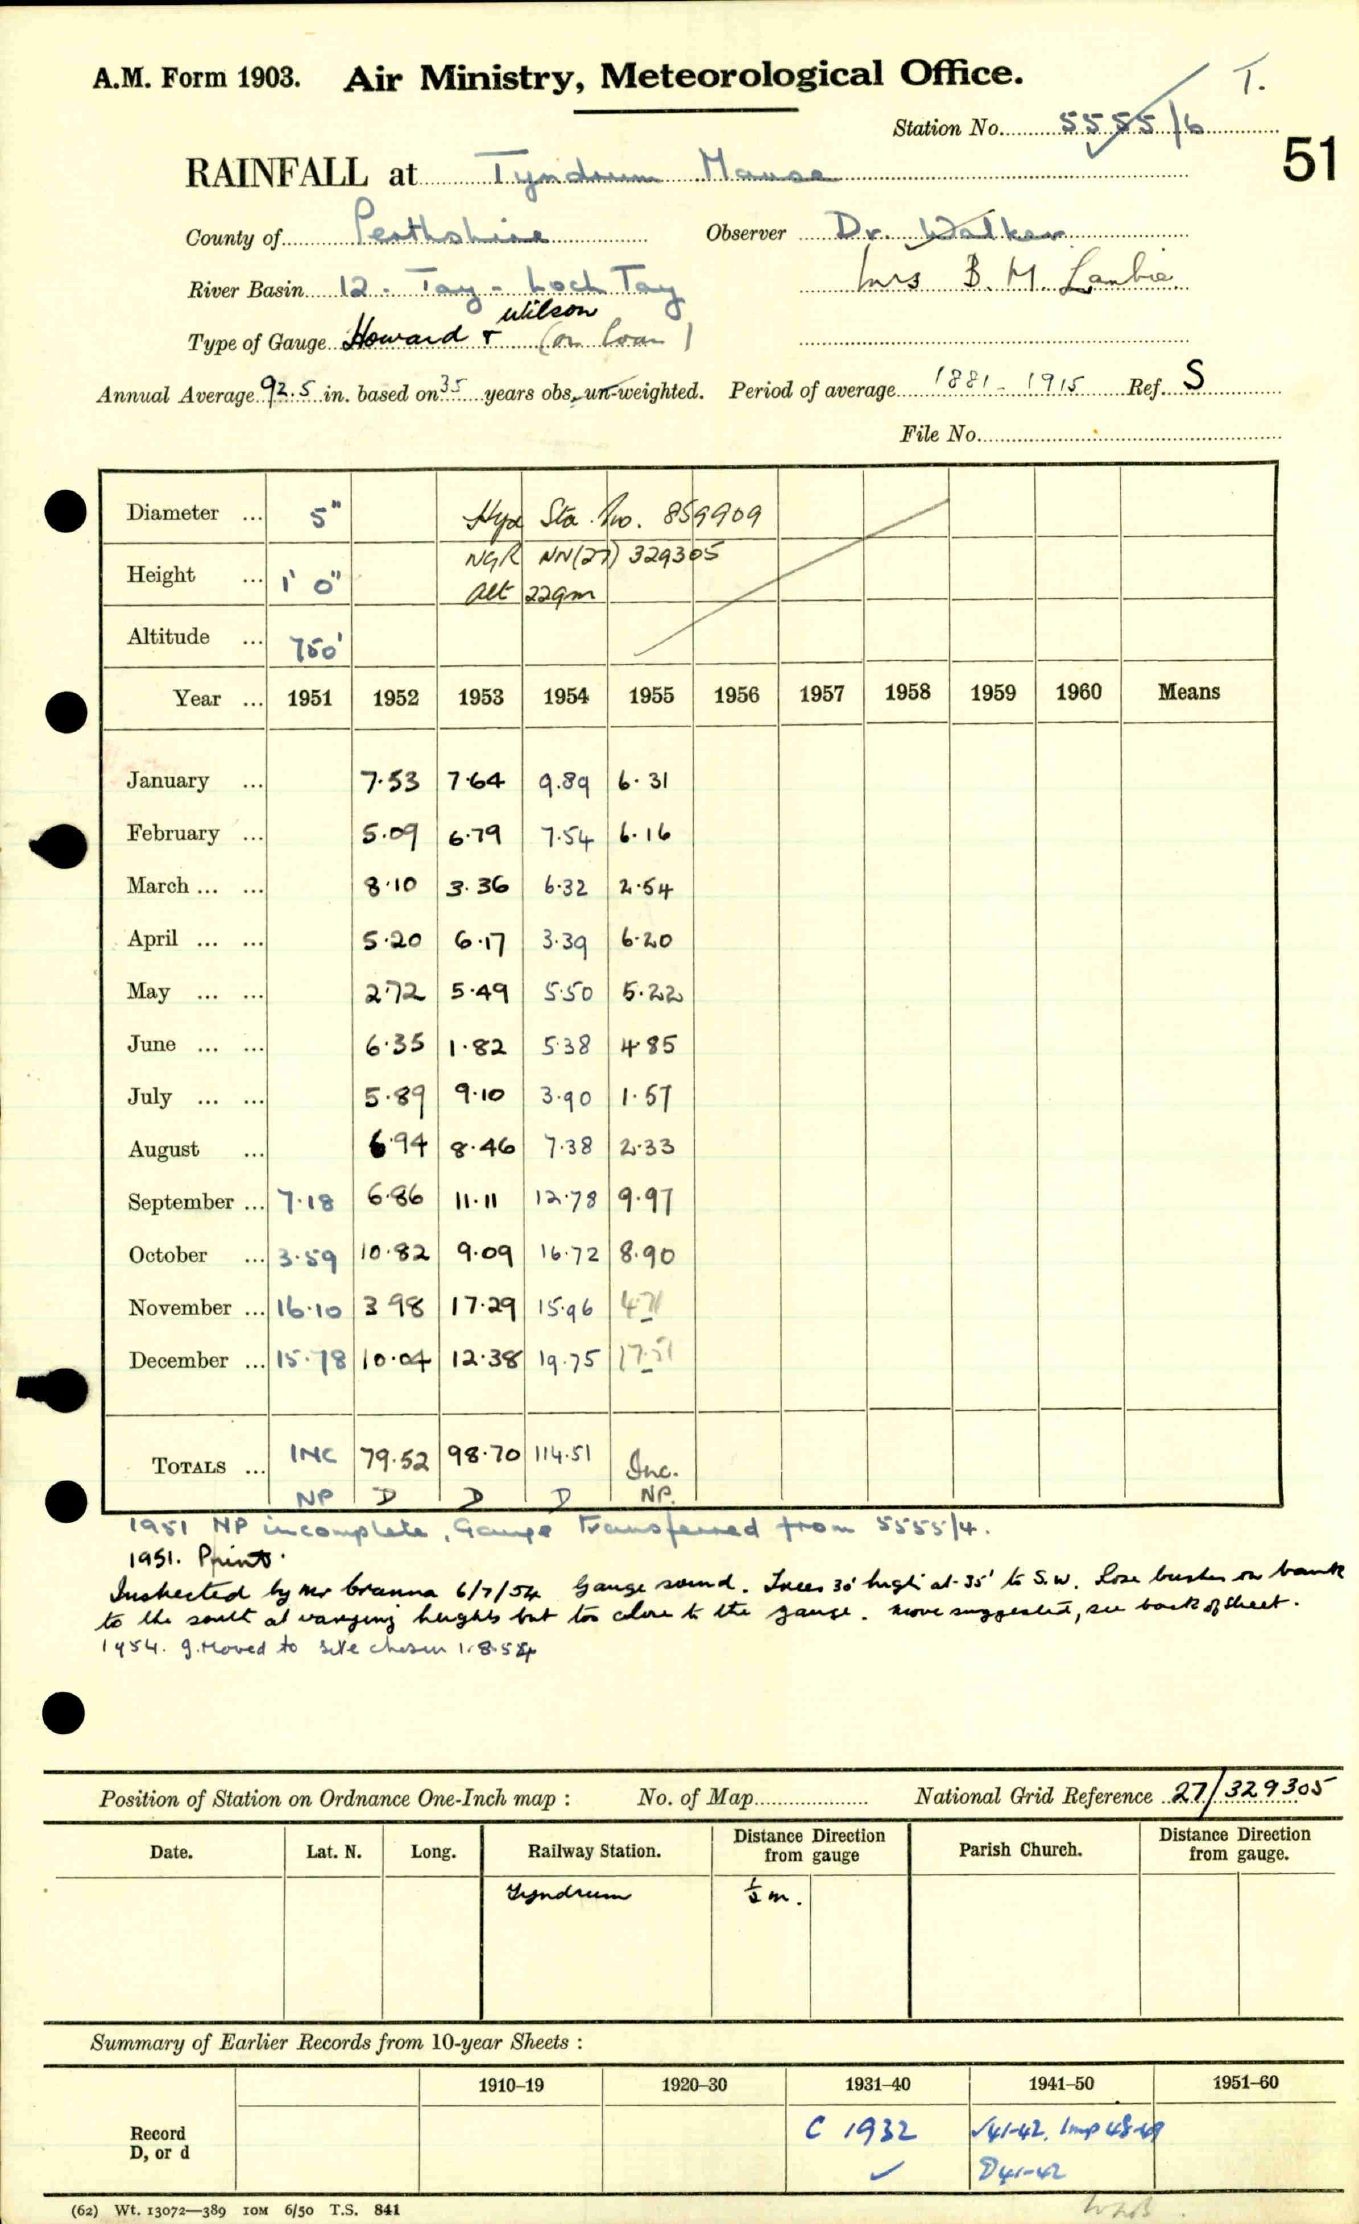 A.M. Form 1903. Air Ministry, Meteorological Office. T.
Station No. 5555/6
51
RAINFALL at Tyndrum Manse
County of Perthshire Observer Dr. Walker
River Basin 12 - Tay - Loch Tay Mrs B. M. Lambie
Type of Gauge Howard & Wilson (on loan)
Annual Average 92.5 in. based on 35 years obs. un-weighted. Period of average 1881 - 1915 Ref. S
File No.
Diameter ... 5" Hyd Sta. No. 859909
Height ... 1' 0" NGR NN(27) 329305
Alt 229m
Altitude ... 750'
Year ... 1951 1952 1953 1954 1955 1956 1957 1958 1959 1960 Means
January ... 7.53 7.64 9.89 6.31
February ... 5.09 6.79 7.54 6.16
March ... ... 8.10 3.36 6.32 2.54
April ... ... 5.20 6.17 3.39 6.20
May ... ... 2.72 5.49 5.50 5.22
June ... ... 6.35 1.82 5.38 4.85
July ... ... 5.89 9.10 3.90 1.57
August ... 6.94 8.46 7.38 2.33
September ... 7.18 6.86 11.11 12.78 9.97
October ... 3.59 10.82 9.09 16.72 8.90
November ... 16.10 3.98 17.29 15.96
December ... 15.78 10.04 12.38 19.75
TOTALS ... INC 79.52 98.70 114.51 Inc.
NP D D D NP.
1951 NP incomplete, Gauge Transferred from 5555/4.
1951. Print.
Inspected by Mr Cranna 6/7/54 Gauge sound. Trees 30' high at 35' to S.W. Rose bushes on bank
to the south at varying heights but too close to the gauge. Move suggested, see back of sheet.
1954. g. Moved to site chosen 1.8.54
Position of Station on Ordnance One-Inch map : No. of Map National Grid Reference 27/329305
Date. Lat. N. Long. Railway Station. Distance Direction from gauge Parish Church. Distance Direction from gauge.
Tyndrum ½ m.
Summary of Earlier Records from 10-year Sheets :
1910–19 1920–30 1931–40 1941–50 1951–60
Record C 1932 √41-42, Imp 48-49
D, or d ✓ D41-42
(62) Wt. 13072—389 10M 6/50 T.S. 841